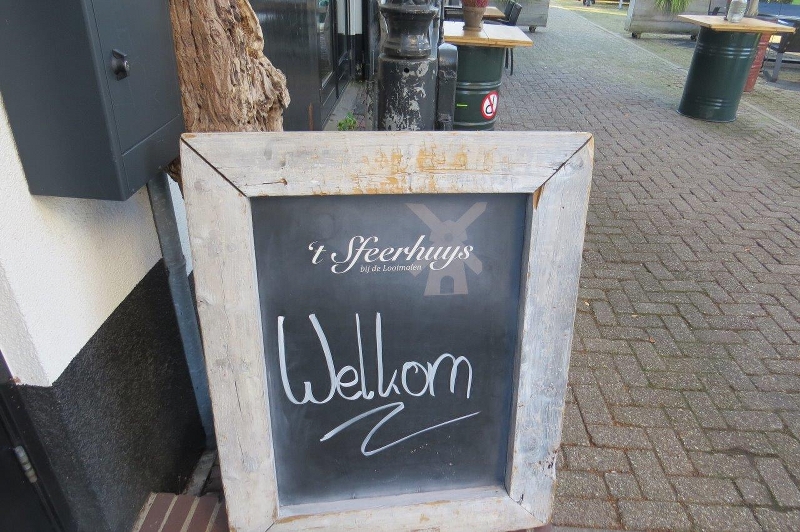 't Sfeerhuys
bij de Looimolen
Welkom